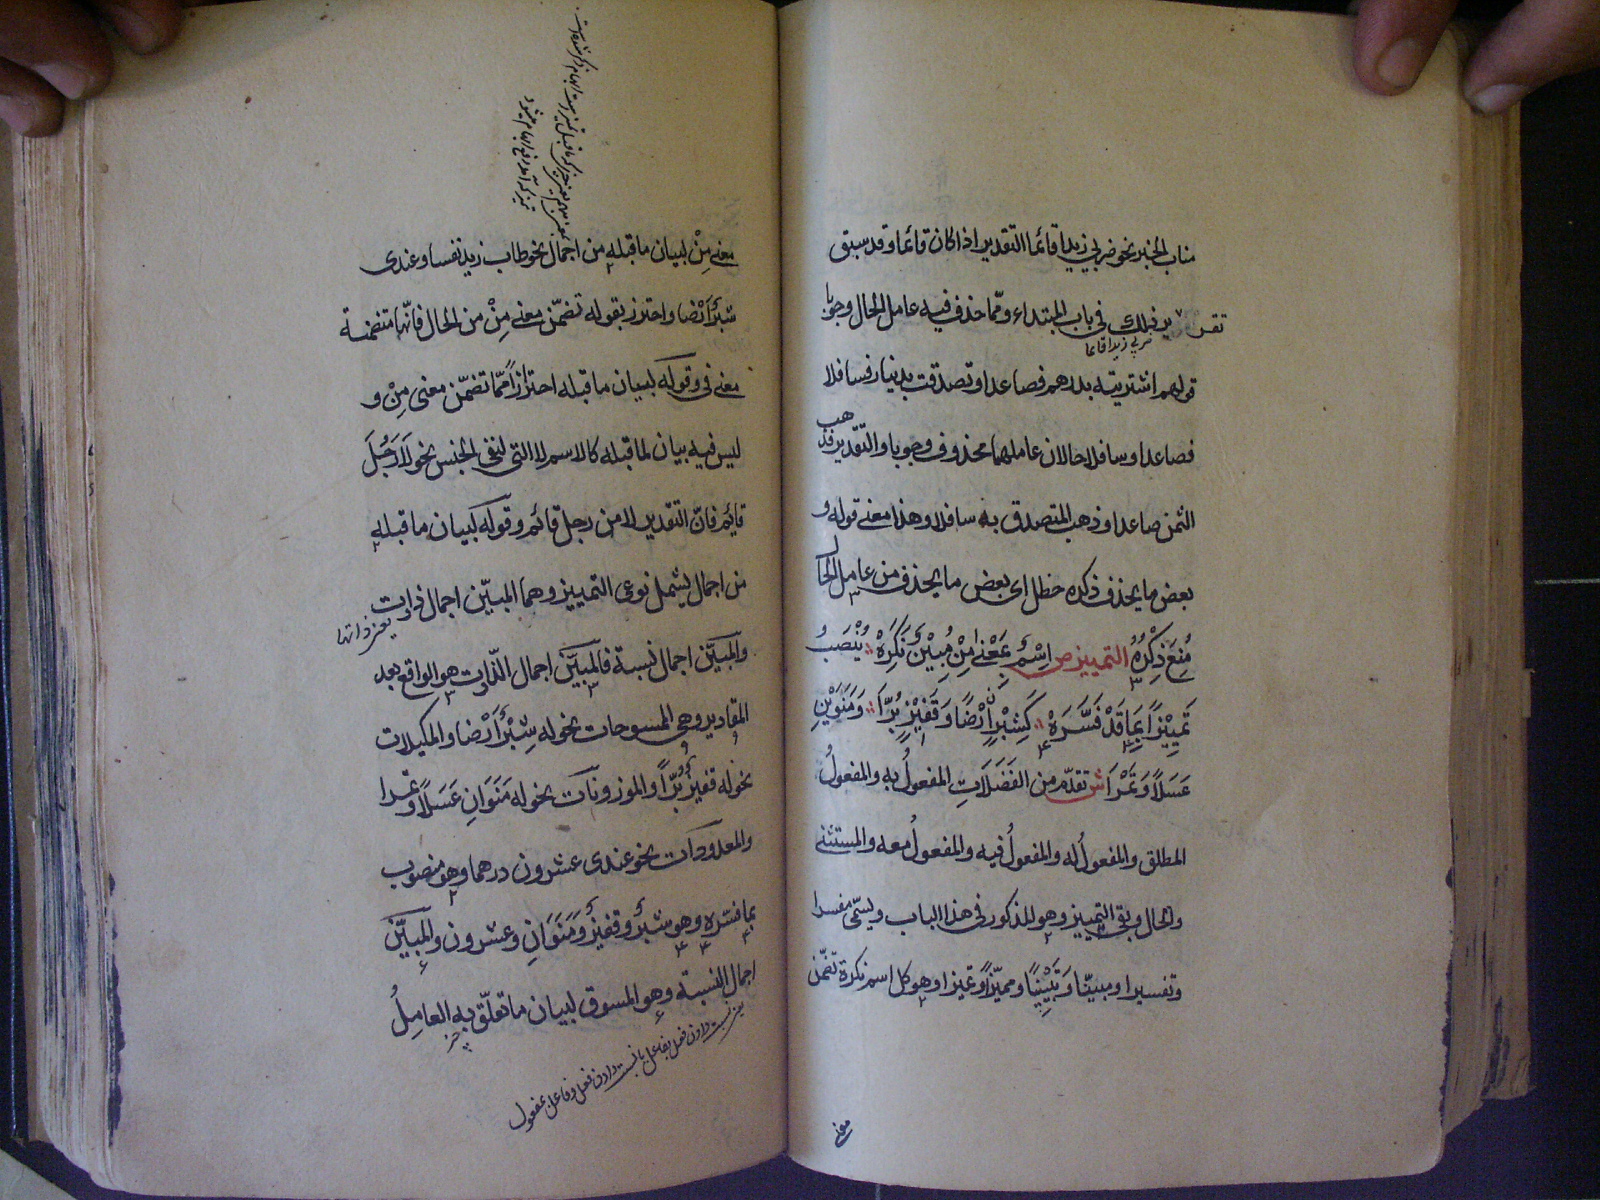 مناب الخبر نحو ضربي زيدا قائما التقدير اذا كان قائما وقد سبق
تقرير ذلك في باب المبتداء وممّا حذف فيه عامل الحال وجوبا
ضربي زيدا قائما
قولهم اشتريته بدرهم فصاعدا وتصدقت بدينار فسافلا
فصاعدا وسافلا حالان عاملهما محذوف وجوبا والتّقدير فذهب
الثمن صاعدا وذهب المتصدق به سافلا وهذا معنى قوله و
بعض ما يحذف ذكره حظل اى بعض ما يحذف من عامل الحال
مُنِعَ ذِكْرُهُ التمييز ص اِسْمٌ بِمَعْنٰى مِنْ مُبِيْنٌ نَكِرَهْ يُنْصَبُ
تَمِيِيْزًا بِمَا قَدْ فَسَّرَهْ كَشِبْرٍ اَرْضًا وَقَفِيْزٍ بُرًّا وَمَنَوَيْنِ
عَسَلًا وَتَمْرًا ش تقدّم من الفَضَلَاتِ المفعولُ به والمفعولُ
المطلق والمفعولُ له والمفعولُ فيه والمفعولُ معه والمستثنى
والحال وبقى التمييز وهو المذكور فى هذا الباب ويسمّى مفسرا
وتفسيرا ومبيّنا وتَبْيِينًا ومميّزًا وتميزا وهو كل اسم نكرة تضمّن
معنى
معنى مِنْ لبيان ما قبله من اجمال نحو طاب زيد نفسا وعندى
شبرٌ اَرْضا واحترز بقوله تضمّن معنى مِنْ من الحال فانّها متضمنة
معنى فى وقوله لبيان ما قبله احترازاً ممّا تضمّن معنى مِنْ و
ليس فيه بيان لما قبله كالاسم لا التى لنفى الجنس نحو لَا رَجُلَ
قايم فانّ التقدير لا من رجل قائم وقوله لبيان ما قبله
من اجمال يشمل نوعى التمييز وهما المبيّن اجمال ذات
يعنى ذاتها
والمبيَّن اجمال نسبة فالمبيَّن اجمال الذّات هو الواقع بعد
المقادير وهى الممسوحات نحو له شِبْرٌ اَرْضا والمكيلات
نحو له قفيزٌ بُرّاً والموزونات نحو له مَنَوَانِ عَسَلًا وتمرا
والمعدودات نحو عندى عشرون درهما وهو منصوب
بما فسّره وهو شبرٌ وقفيزٌ ومَنَوَانِ وعشرون والمبيّن
اجمال النسبة وهو المسوق لبيان ما تعلّق به العامِلُ